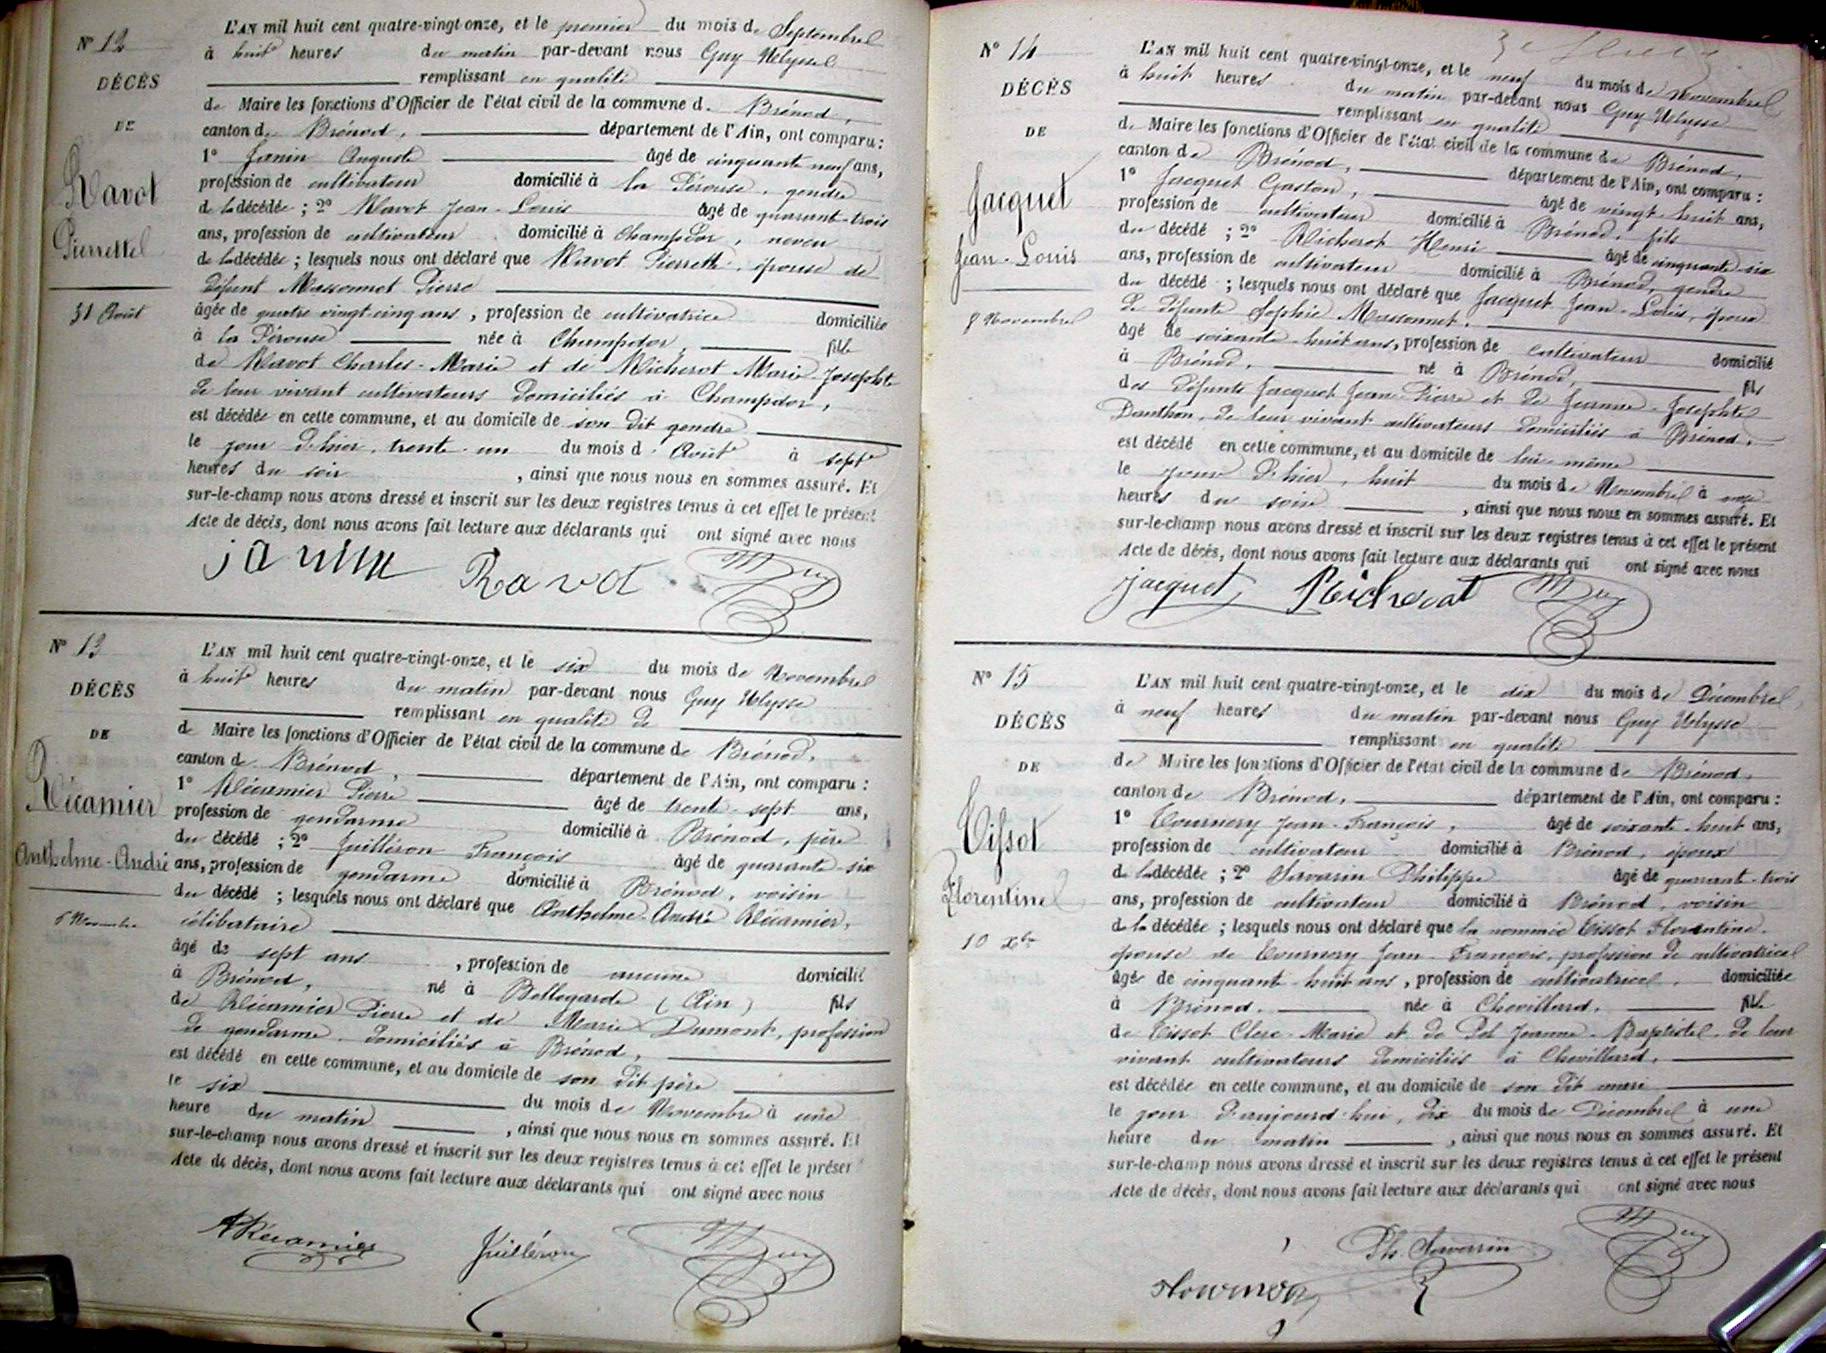 N° 12
DÉCÈS
DE
Ravot
Pierrette
31 Août
L'AN mil huit cent quatre-vingt-onze, et le premier du mois de Septembre
à huit heures du matin par-devant nous Guy Ulysse
remplissant en qualité
de Maire les fonctions d'Officier de l'état civil de la commune d. Brénod,
canton de Brénod, département de l'Ain, ont comparu :
1° Janin Auguste âgé de cinquante neuf ans,
profession de cultivateur domicilié à la Pérouse, gendre
de la décédée ; 2° Ravot Jean-Louis âgé de quarant-trois
ans, profession de cultivateur domicilié à Champdor, neveu
de la décédée ; lesquels nous ont déclaré que Ravot Pierrette, épouse de
défunt Massonnet Pierre
âgée de quatre vingt-cinq ans, profession de cultivatrice domiciliée
à la Pérouse née à Champdor, fille
de Ravot Charles-Marie et de Richerot Marie-Josephte
de leur vivant cultivateurs domiciliés à Champdor,
est décédée en cette commune, et au domicile de son dit gendre
le jour d'hier, trente-un du mois d'Août à sept
heures du soir, ainsi que nous nous en sommes assuré. Et
sur-le-champ nous avons dressé et inscrit sur les deux registres tenus à cet effet le présent
Acte de décès, dont nous avons fait lecture aux déclarants qui ont signé avec nous
janin Ravot Guy
N° 13
DÉCÈS
DE
Récamier
Anthelme-André
6 Novembre
L'AN mil huit cent quatre-vingt-onze, et le six du mois de Novembre
à huit heures du matin par-devant nous Guy Ulysse
remplissant en qualité de
d. Maire les fonctions d'Officier de l'état civil de la commune de Brénod,
canton de Brénod, département de l'Ain, ont comparu :
1° Récamier Pierre âgé de trent-sept ans,
profession de gendarme domicilié à Brénod, père
du décédé ; 2° Juilléron François âgé de quarante-six
ans, profession de gendarme domicilié à Brénod, voisin
du décédé ; lesquels nous ont déclaré que Anthelme-André Récamier,
célibataire
âgé de sept ans, profession de aucune domicilié
à Brénod, né à Bellegarde (Ain) fils
de Récamier Pierre et de Marie Dumont, profession
de gendarme domiciliés à Brénod,
est décédé en cette commune, et au domicile de son dit père
le six du mois de Novembre à une
heure du matin, ainsi que nous nous en sommes assuré. Et
sur-le-champ nous avons dressé et inscrit sur les deux registres tenus à cet effet le présent
Acte de décès, dont nous avons fait lecture aux déclarants qui ont signé avec nous
Récamier Juilléron Guy
N° 14
DÉCÈS
DE
Jacquet
Jean-Louis
8 Novembre
L'AN mil huit cent quatre-vingt-onze, et le neuf du mois de Novembre
à huit heures du matin par-devant nous Guy Ulysse
remplissant en qualité
d. Maire les fonctions d'Officier de l'état civil de la commune de Brénod,
canton de Brénod, département de l'Ain, ont comparu :
1° Jacquet Gaston, âgé de vingt-huit ans,
profession de cultivateur domicilié à Brénod, fils
du décédé ; 2° Richerot Henri âgé de cinquante-six
ans, profession de cultivateur domicilié à Brénod, gendre
du décédé ; lesquels nous ont déclaré que Jacquet Jean-Louis, époux
de défunte Sophie Massonnet,
âgé de soixante-huit ans, profession de cultivateur domicilié
à Brénod, né à Brénod, fils
des défunts Jacquet Jean-Pierre et de Jeanne-Josephte
Danthon, de leur vivant cultivateurs domiciliés à Brénod,
est décédé en cette commune, et au domicile de lui-même
le jour d'hier, huit du mois de Novembre à onze
heures du soir, ainsi que nous nous en sommes assuré. Et
sur-le-champ nous avons dressé et inscrit sur les deux registres tenus à cet effet le présent
Acte de décès, dont nous avons fait lecture aux déclarants qui ont signé avec nous
jacquet Richerot Guy
N° 15
DÉCÈS
DE
Tissot
Florentine
10 xbre
L'AN mil huit cent quatre-vingt-onze, et le dix du mois de Décembre,
à neuf heures du matin par-devant nous Guy Ulysse
remplissant en qualité
de Maire les fonctions d'Officier de l'état civil de la commune de Brénod,
canton de Brénod, département de l'Ain, ont comparu :
1° Tournery Jean-François, âgé de soixante-huit ans,
profession de cultivateur domicilié à Brénod, époux
de la décédée ; 2° Savarin Philippe âgé de quarant-trois
ans, profession de cultivateur domicilié à Brénod, voisin
de la décédée ; lesquels nous ont déclaré que la nommée Tissot Florentine
épouse de Tournery Jean-François, profession de cultivatrice
âgée de cinquant-huit ans, profession de cultivatrice, domiciliée
à Brénod née à Chevillard, fille
de Tissot Clerc-Marie et de Pel Jeanne-Baptiste de leur
vivant cultivateurs domiciliés à Chevillard,
est décédée en cette commune, et au domicile de son dit mari
le jour d'aujourd'hui, dix du mois de Décembre à une
heure du matin, ainsi que nous nous en sommes assuré. Et
sur-le-champ nous avons dressé et inscrit sur les deux registres tenus à cet effet le présent
Acte de décès, dont nous avons fait lecture aux déclarants qui ont signé avec nous
Ph. Savarin Guy